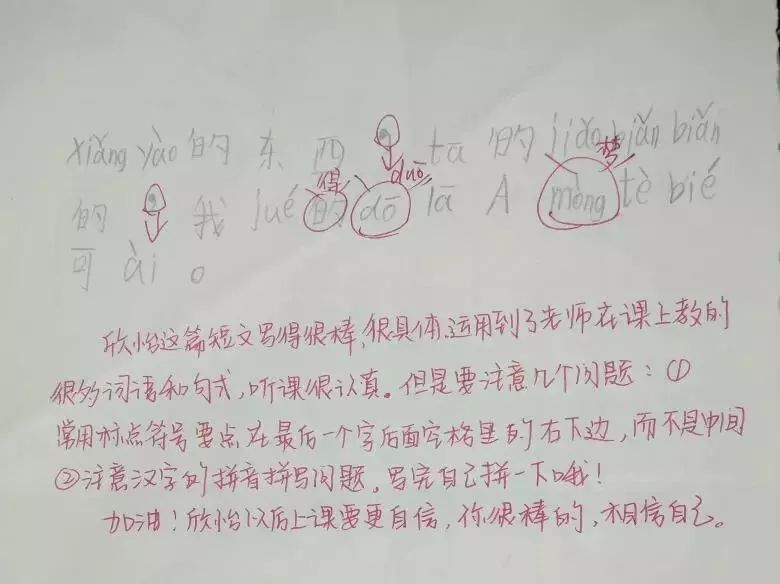 xiǎng yào的东西。tā的jiǎo biǎn biǎn
的。我jué的dō lā A mòng tè bié
得 duō 梦
可ài。
欣怡这篇短文写得很棒,很具体,运用到了老师在课上教的
很多词语和句式,听课很认真。但是要注意几个问题:①
常用标点符号要点在最后一个字后面空格里的右下边,而不是中间
②注意汉字的拼音拼写问题,写完自己拼一下哦!
加油!欣怡以后上课要更自信,你很棒的,相信自己。